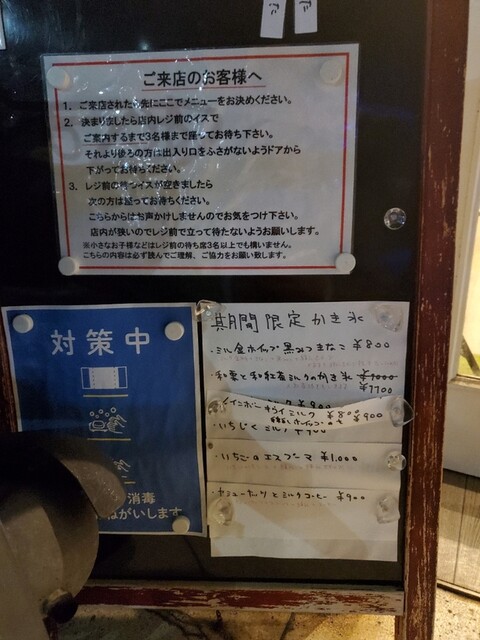 ご来店のお客様へ
1. ご来店されたら先にここでメニューをお決めください。
2. 決まりましたら店内レジ前のイスで
ご案内するまで3名様まで座ってお待ち下さい。
それより後ろの方は出入り口をふさがないようドアから
下がってお待ちください。
3. レジ前の待つイスが空きましたら
次の方は座ってお待ちください。
こちらからはお声かけしませんのでお気をつけ下さい。
店内が狭いのでレジ前で立って待たないようお願いします。
※小さなお子様などはレジ前の待ち席3名以上でも構いません。
こちらの内容は必ず読んでご理解、ご協力をお願い致します。
対策中
消毒
ねがいします
期間限定かき氷
・ミルク金ホイップ黒みつきなこ ¥800
・和栗と和紅茶ミルクのかき氷 ¥1000
¥1100
ミルク ¥800 ¥900
・いちじくミルク ¥900
・いちごのエスプーマ ¥1,000
・カシューナッツとミルクコーヒー ¥900